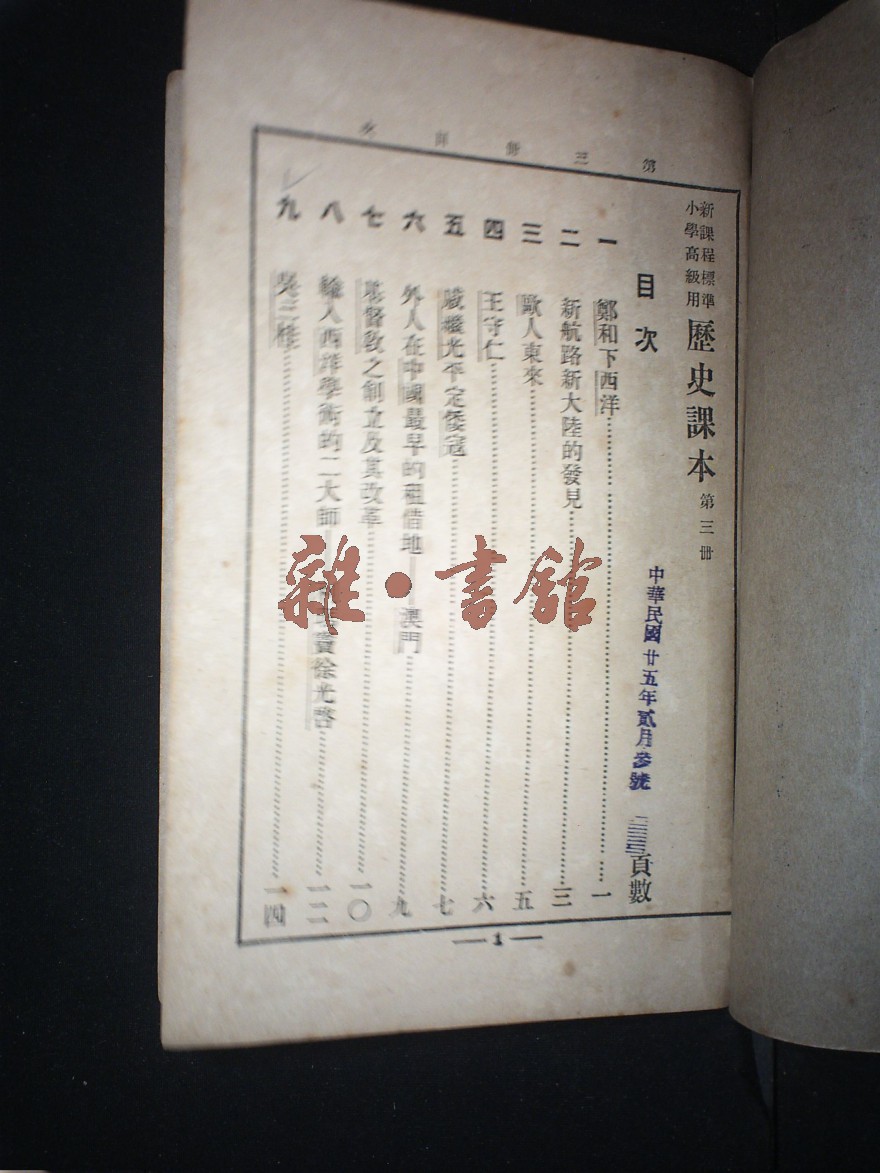 第三冊目次
新課程標準
小學高級用
歷史課本 第三冊
目次
頁數
中華民國廿五年貳月參號
一 鄭和下西洋 一
二 新航路新大陸的發見 三
三 歐人東來 五
四 王守仁 六
五 戚繼光平定倭寇 七
六 外人在中國最早的租借地——澳門 九
七 基督教之創立及其改革 一〇
八 輸入西洋學術的二大師 竇徐光啓 一二
九 吳三桂 一四
1
雜·書館